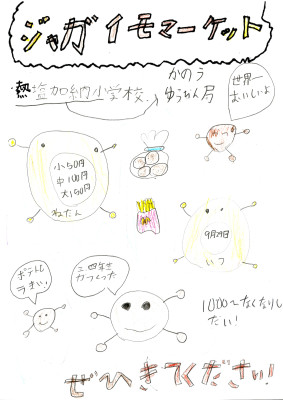 ジャガイモマーケット
熱塩加納小学校、
かのう
ゆうびん局
世界一
おいしいよ
小50円
中100円
大150円
ねだん
9月29日
いつ
ポテトも
うまい!
三四年生
がつくった
1000〜なくなりし
だい!
ぜひきてください!